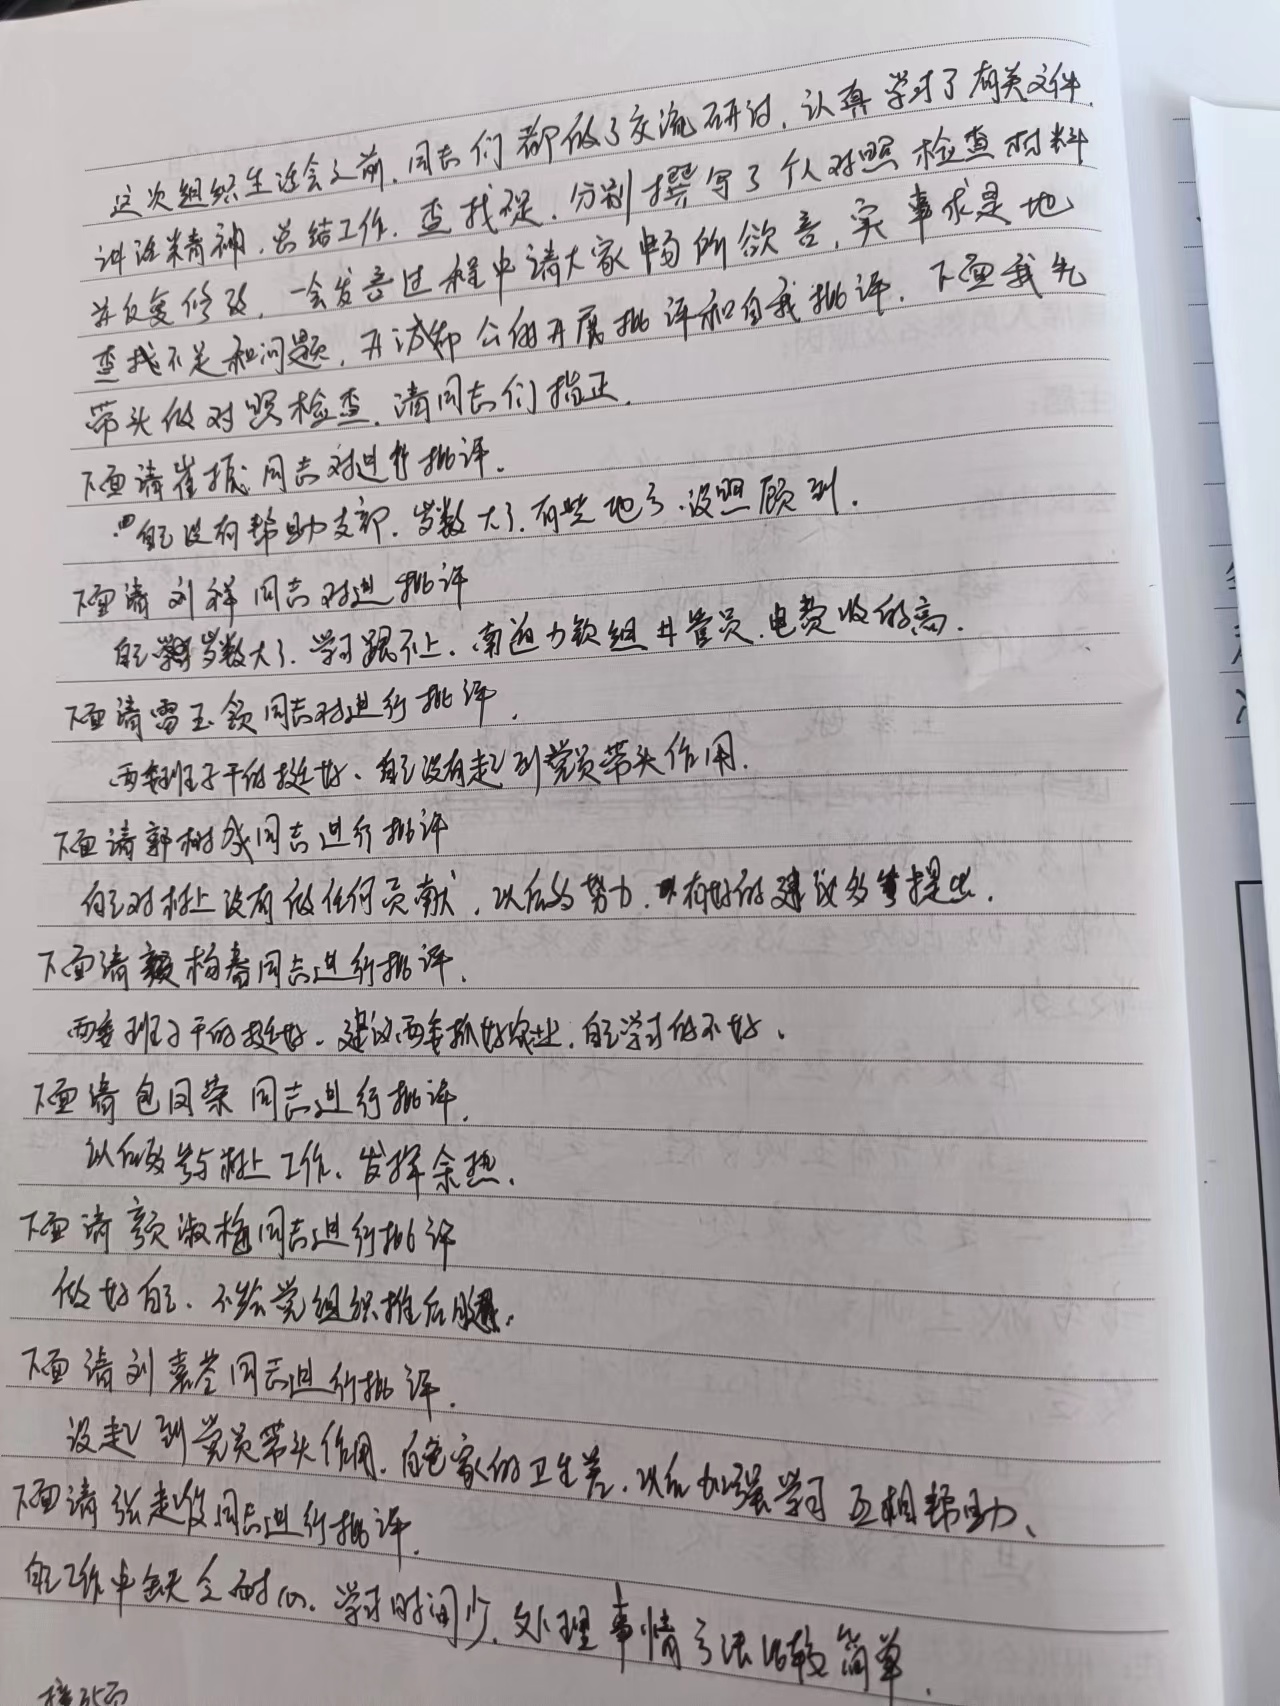 这次组织生活会之前，同志们都做了交流研讨，认真学习了有关文件
讲话精神，总结工作，查找，分别撰写了个人对照检查材料
并反复修改，一会发言过程中请大家畅所欲言，实事求是地
查找不足和问题，开诚布公的开展批评和自我批评，下面我先
带头做对照检查，请同志们指正。
下面请崔振同志对进行批评。
自己没有帮助支部，岁数大了，有些地方没照顾到。
下面请刘祥同志对进批评
自己岁数大了，学习跟不上，南组井管员，电费收的高。
下面请雷玉同志对进行批评。
两委班子干的挺好、自己没有起到党员带头作用。
下面请郭树成同志进行批评
自己对村上没有做任何贡献，以后努力，有好的建议多提出。
下面请颜柏春同志进行批评。
两委班子干的挺好，建议两委抓好，自己学习的不好。
下面请包凤荣同志进行批评。
以后多参与村上工作，发挥余热。
下面请颜淑梅同志进行批评
做好自己、不给党组织拖后腿。
下面请刘同志进行批评。
没起到党员带头作用，自己家的卫生差，以后加强学习互相帮助、
下面请张起同志进行批评。
自己工作中缺乏耐心，学习时间少，处理事情方法比较简单。
接续页